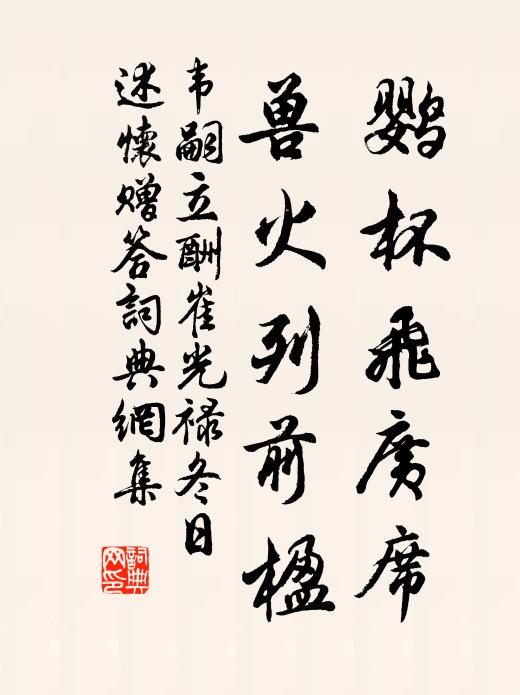 鹦杯飛廣席
兽火列前楹
韦嗣立酬崔光禄冬日
述懷赠答詞典網集
詞典网印